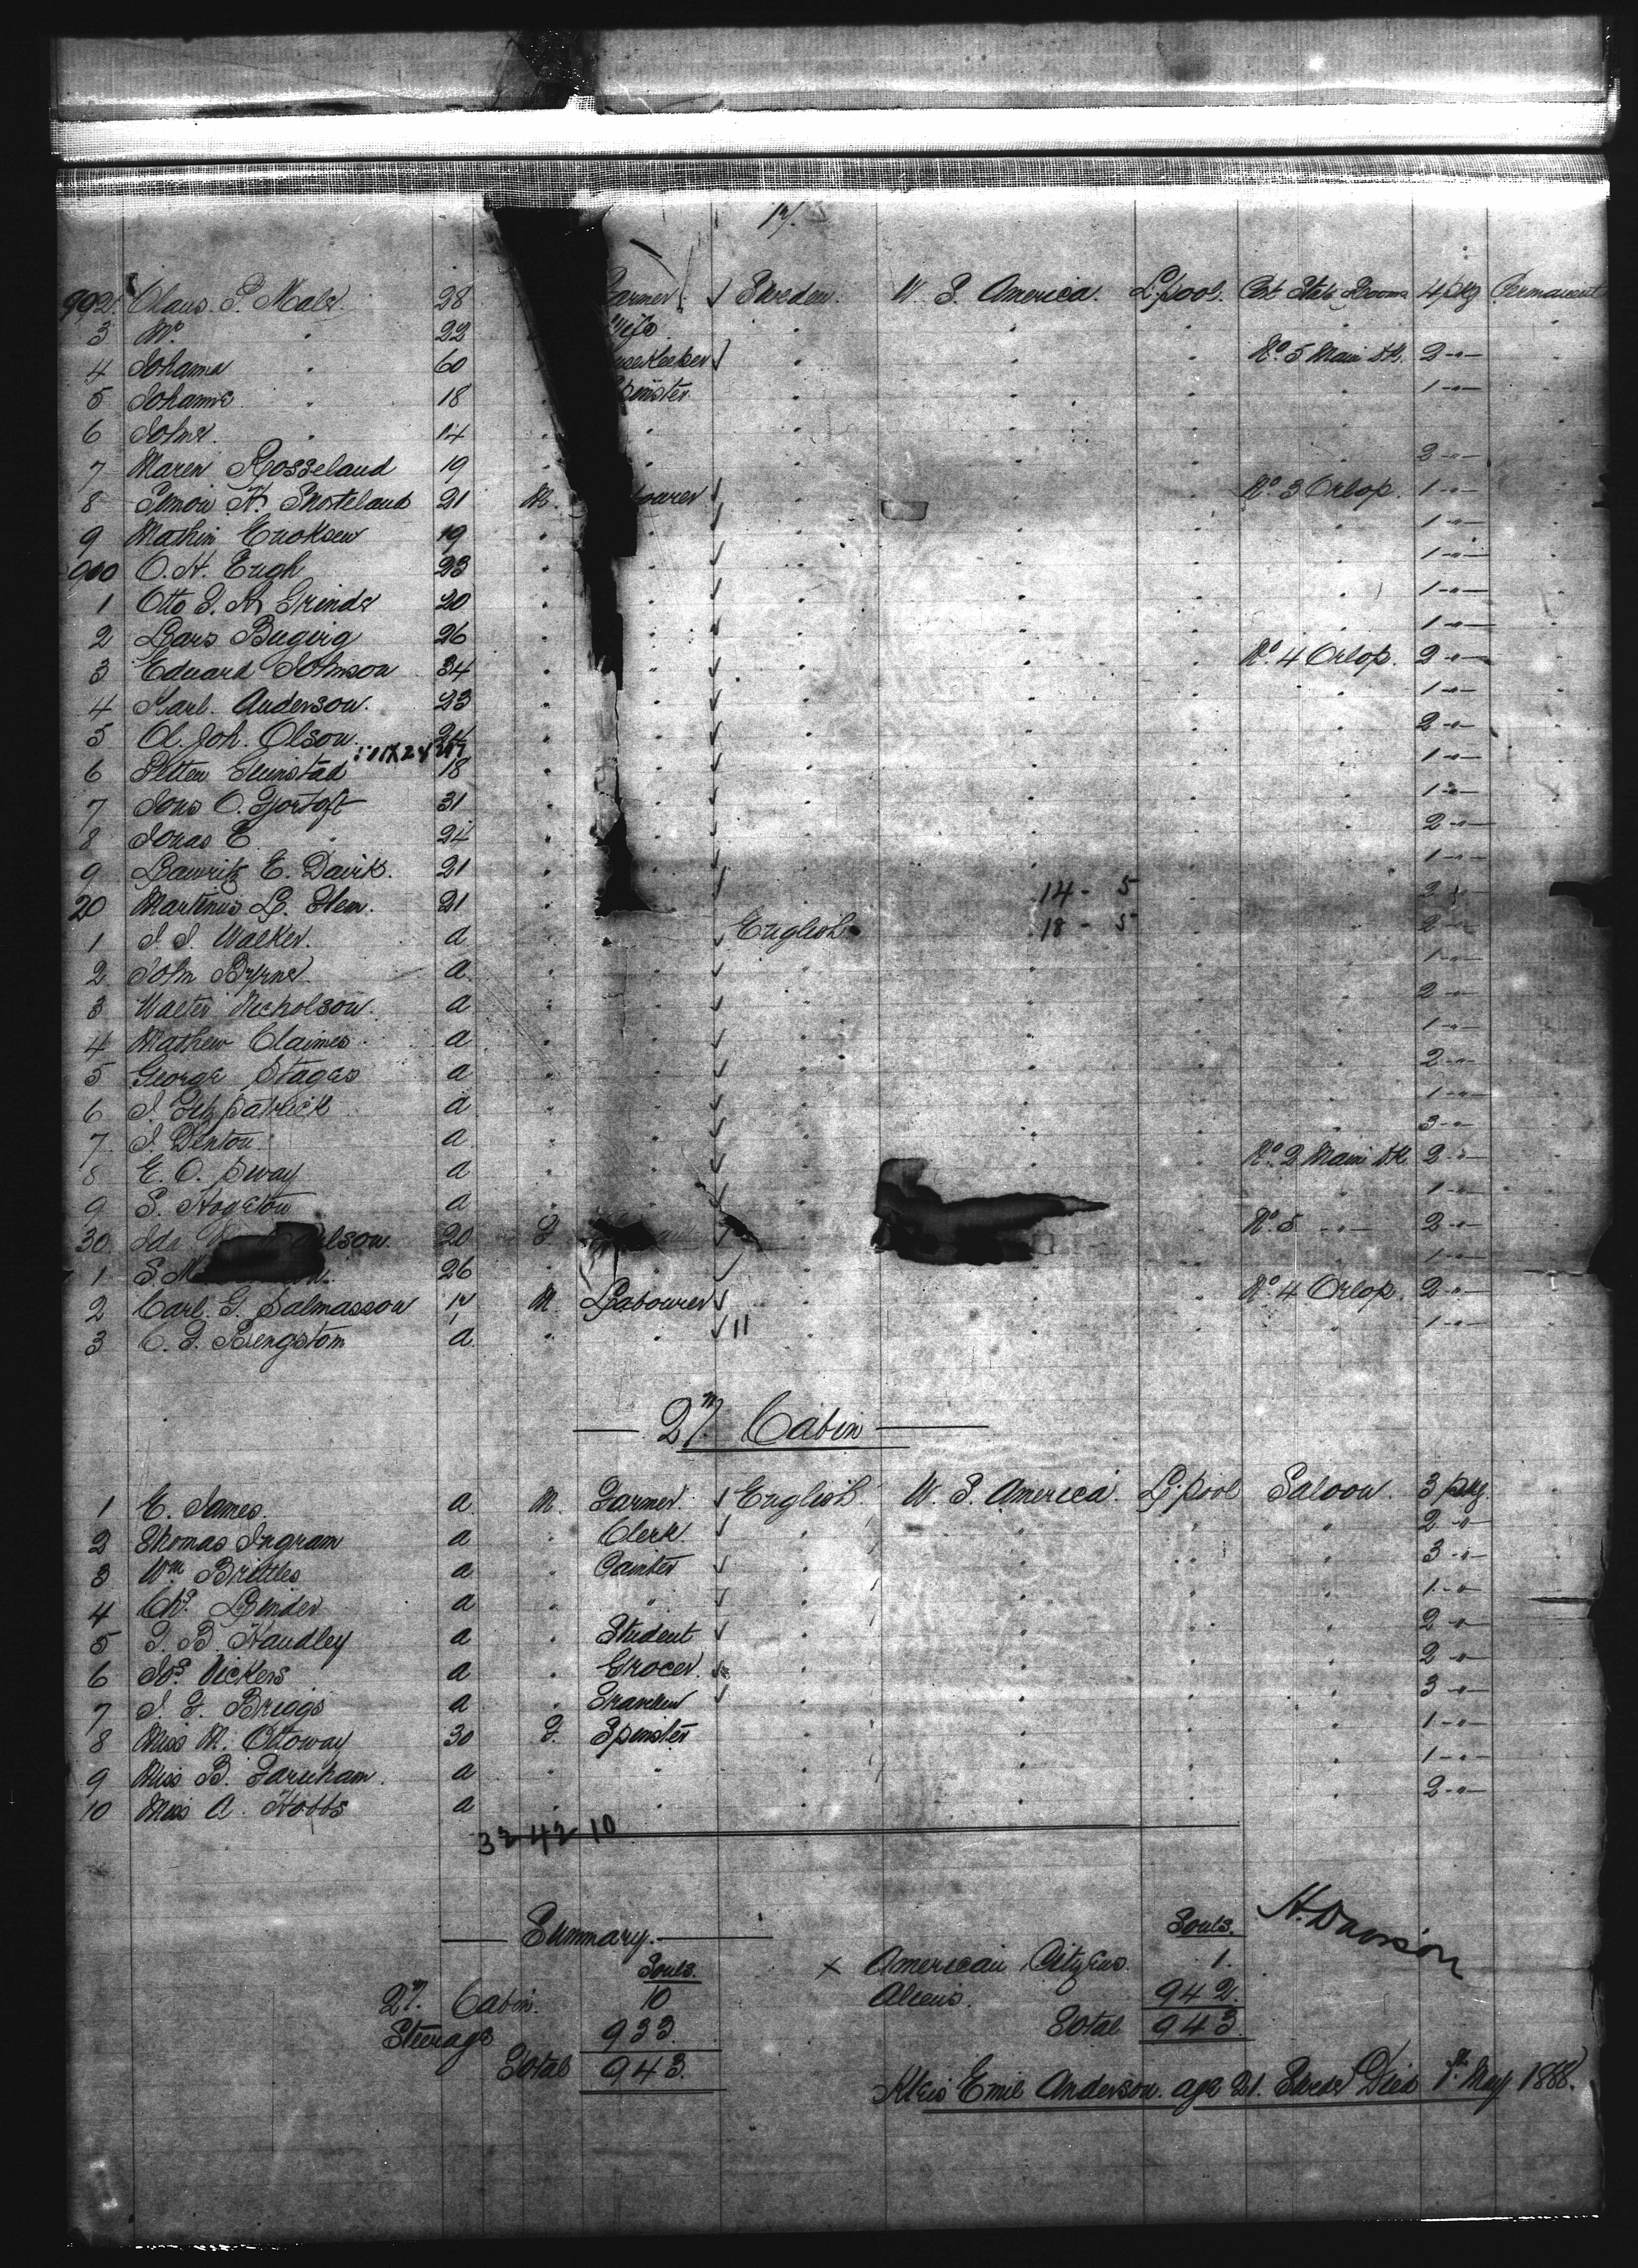 17.
902. Claus. P. Male. 28 Farmer. ✓ Sweden. U. S. America. L'pool. Cct State Rooms 4 pkg Permanent
3 Mrs " 22 Wife "
4 Johanna " 60 Housekeeper ✓ " No. 5 Main Dk. 2 -"-
5 Johanna " 18 Spinster " 1 -"-
6 John. " 14 "
7 Maren Rosseland 19 " 2 -"-
8 Simon K. Skosteland 21 M. Labourer ✓ " No. 3 Orlop. 1 -"-
9 Mathin Ericksen 19 " ✓ 1 -"-
900 O. H. Eugh 23 " ✓ 1 -"-
1 Otto S. A. Grinde 20 " ✓ 1 -"-
2 Lars Bugvig 26 " ✓ 1 -"-
3 Eduard Johnson 34 " ✓ No. 4 Orlop. 2 -"-
4 Karl. Anderson. 23 " ✓ 1 -"-
5 Ol. Joh. Olson. 24 " ✓ 2 -"-
6 Petter Gunstad 18 " ✓ 1 -"-
7 Jons O. Gjortoft 31 " ✓ 1 -"-
8 Jonas E. " 24 " ✓ 2 -"-
9 Lawritz E. Davik. 21 " ✓ 1 -"-
20 Martinus L. Flem. 21 " ✓ 14 - 5 2 -"-
1 J. J. Walker. a " ✓ English. 18 - 5 2 -"-
2 John Byrne. a " ✓ 1 -"-
3 Walter Nicholson. a " ✓ 2 -"-
4 Mathew Claimes. a " ✓ 1 -"-
5 George Stages a " ✓ 2 -"-
6 J. Fitzpatrick a " ✓ 1 -"-
7 J. Denton. a " ✓ 3 -"-
8 E. O. Sway a " ✓ No. 2 Main Dk. 2 -"-
9 S. Hogeton a " ✓ 1 -"-
30 Ida 20 F No. 5 -"- 2 -"-
1 S. M 26 " ✓ 1 -"-
2 Carl. G. Salmasson M. Labourer ✓ No. 4 Orlop. 2 -"-
3 C. F. Bengstom a. " ✓ 11 1 -"-
2nd. Cabin
1 E. James. a. M. Farmer. ✓ English. U. S. America. L'pool Saloon. 3 pkg.
2 Thomas Ingram a " Clerk. ✓ 2 -"-
3 Wm. Brittles a. " Painter ✓ 3 -"-
4 Chs. Binder a " " ✓ 1 -"-
5 F. B. Handley a " Student ✓ 2 -"-
6 Jos. Vickers a " Grocer. ✓ 2 -"-
7 J. F. Briggs a " Traveller ✓ 3 -"-
8 Miss M. Ottoway 30 F. Spinster 1 -"-
9 Miss B. Farnham. a " " 1 -"-
10 Miss A. Hobbs a " " 2 -"-
32 42 10
Summary.
Souls. Souls. H. Dawson
2nd. Cabin. 10 × American Citizens. 1.
Steerage 933. Aliens. 942.
Total 943. Total 943.
Emil Anderson. age 21. Swede Died 1st. May 1888.